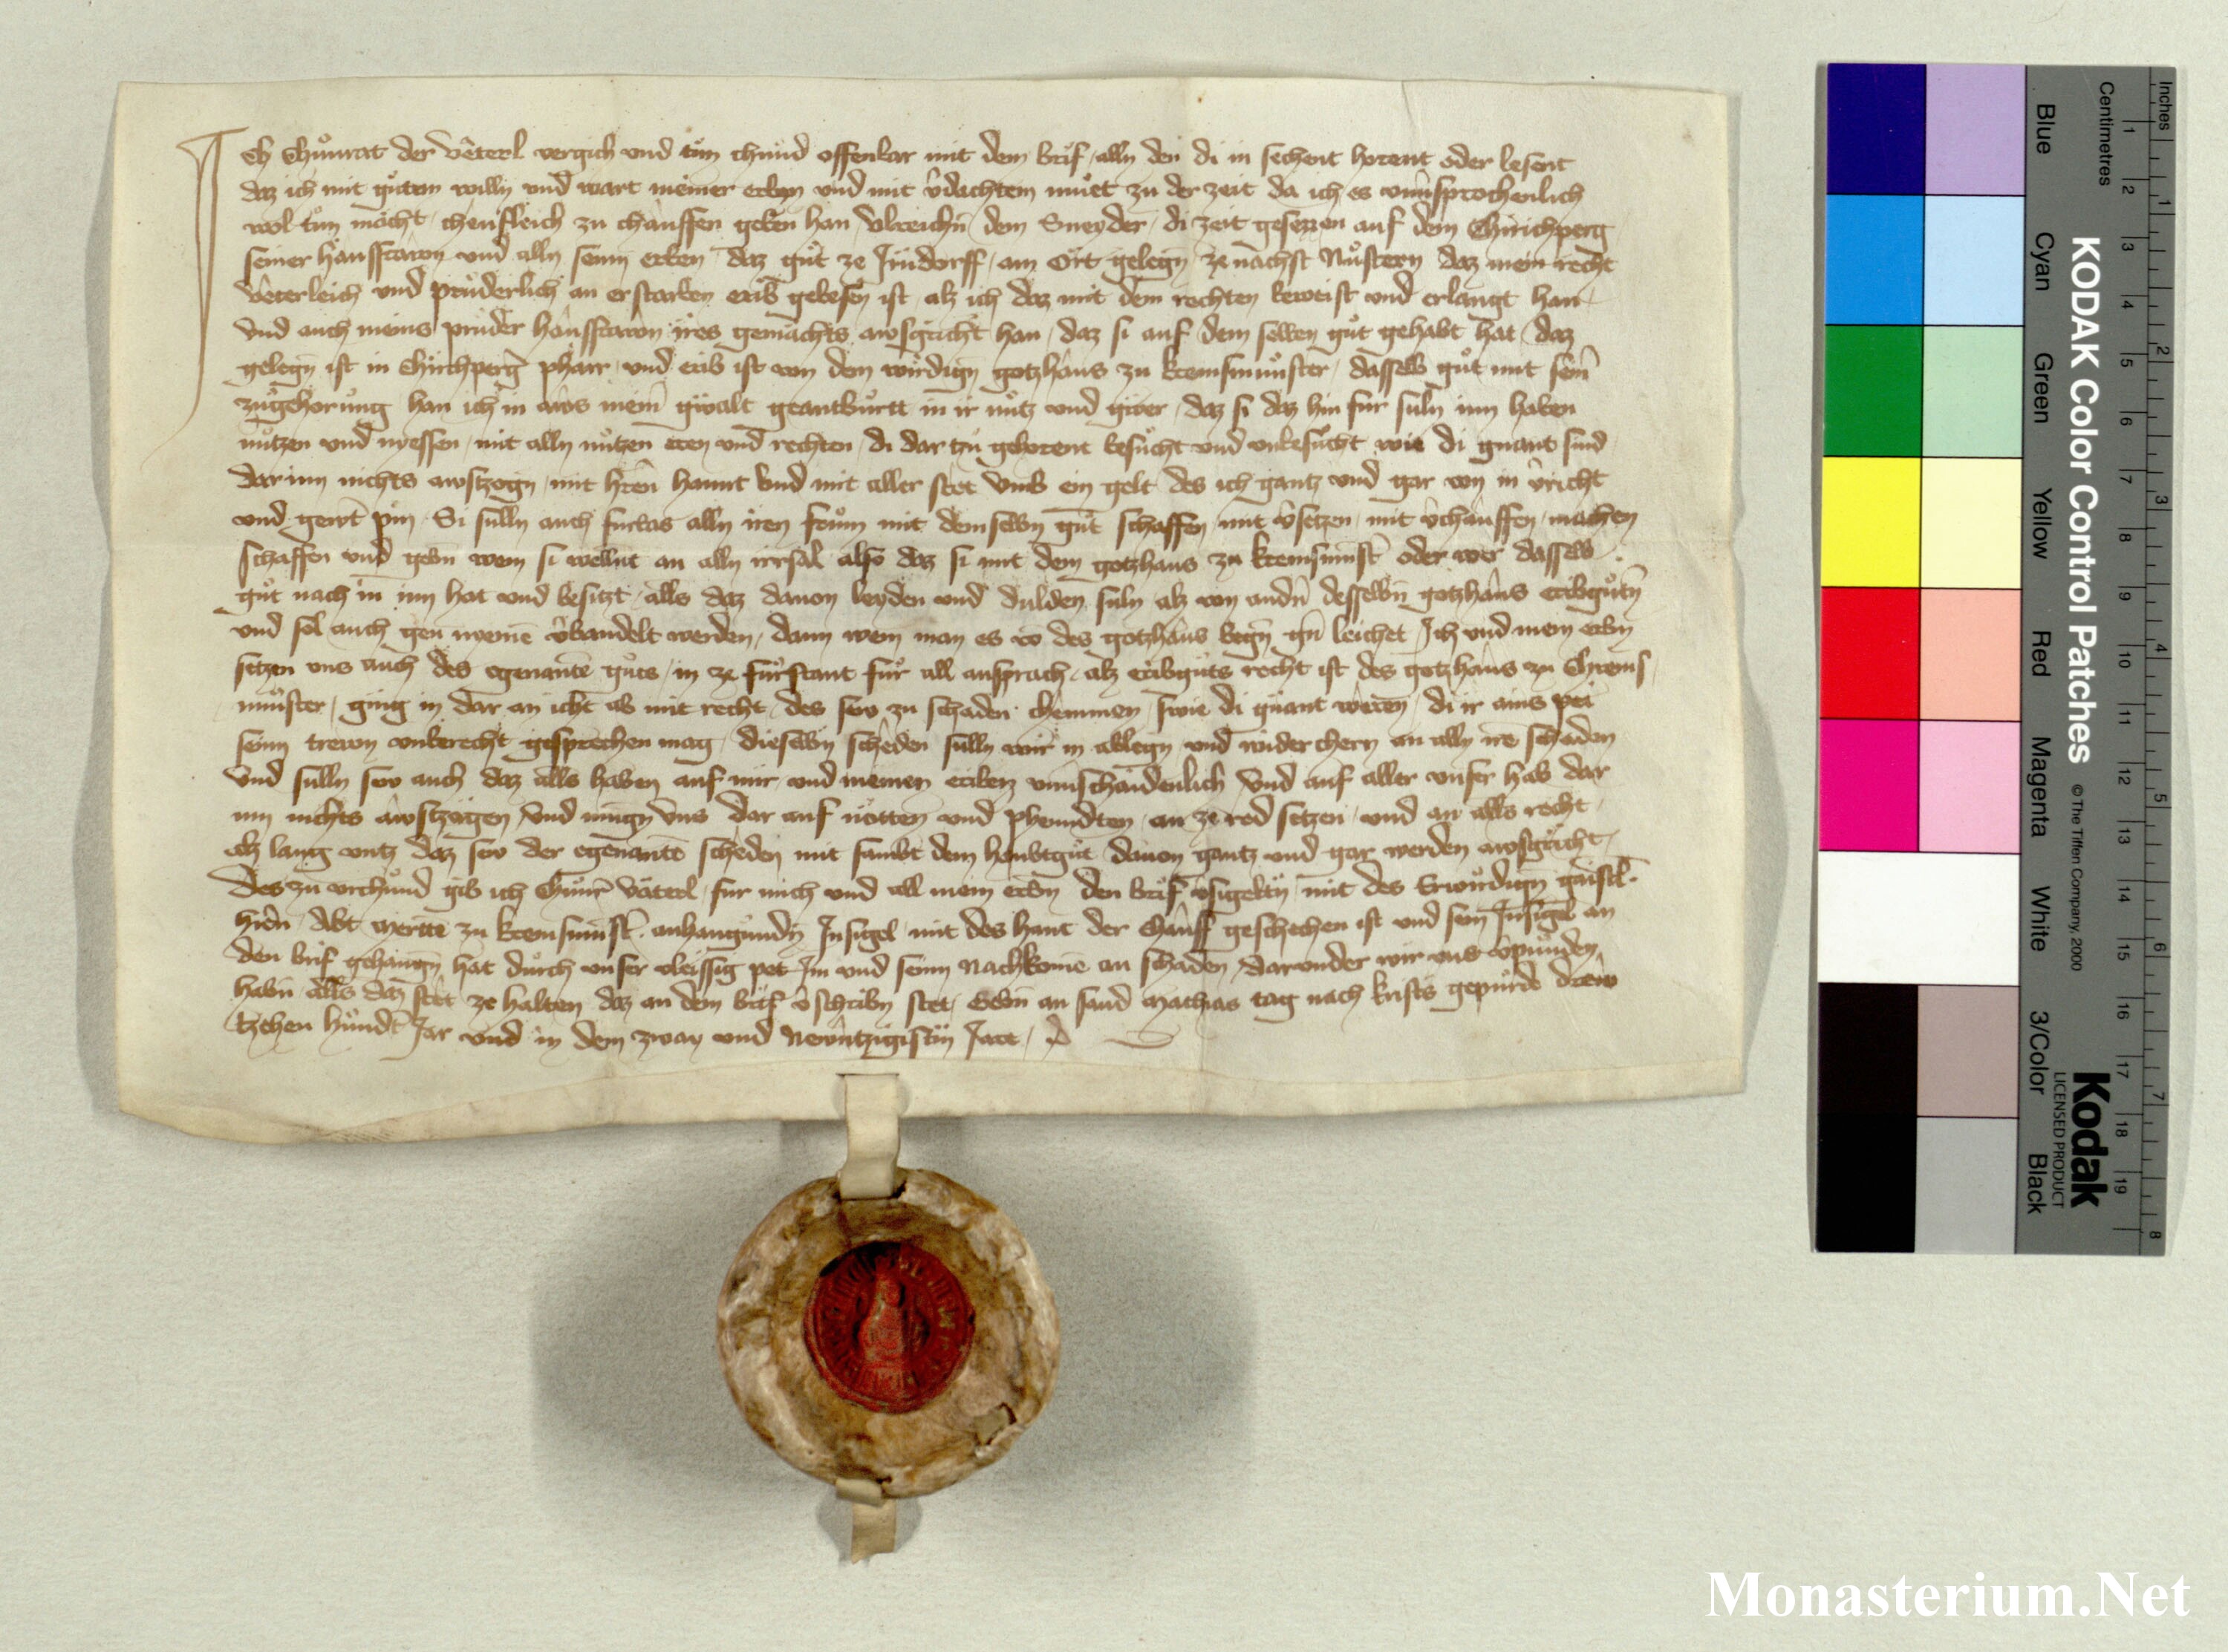 Ich Chůnrat der Vêterl vergich und tůn chund offenbar mit dem brif alln den di in sechent horent oder lesent
daz ich mit gůtem willn und wart meiner erben und mit v̂dachtem můet zu der zeit da ich es unu̇sprochenlich
wol tůn mächt cheufleich zu chauffen geben han Ulreichn̄ dem Sneyder di zeit gesezzen auf dem Chirichperg
seiner hausfrawn und alln seinn erben daz gůt ze Jndorff am Ort gelegn̄ ze nachst Nůstern daz mein recht
Veterleich und prüderlich an erstarben erib gebesen ist alz ich daz mit dem rechten beweist und erlangt han
Und auch meins prüder hausfrawn ires gemächts awsgericht han daz si auf dem selben gůt gehabt hat daz
gelegn̄ ist in Chirchperger pharr und erib ist von dem wirdign̄ gotzhaus zu kremsmůnster dasselb gůt mit sein̄
zůgehorung han ich in aws mein̄ gwalt geantbůrtt in ir nůtz und gwer daz si daz hin fur suln inn haben
nůtzen und nyessen mit alln nůtzen eren und rechten di dar tzů gehorent besůcht und unbesůcht wie di gnant sind
dar inn nichts awsczogn mit hren̄ hannt und mit aller stet umb ein gelt des ich gantz und gar von in v̂richt
und gewert pin Si sulln auch furbas alln iren frům mit demselbn gůt schaffen mit v̂setzen mit v̂chauffen machen
schaffen und gebn wem si wellnt an alln irrsal also daz si mit dem gotzhaus zu kremsmůnst̄ oder wer dasselb
gůt nach in inn hat und besitzt alls daz davon leyden und dulden suln alz von andn̄ desselbn̄ gotzhaus eribgůtn̄
und sol auch gen nyemē v̂bandelt werden dann wem man es vō des gotzhaus wegn̄ gn̄ leichet Ich und mein erbn
setzen uns auch des egenantē gůts in ze fůrstant fůr all ansprach alz eribgůts recht ist des gotzhaus zu Chrems
můnster ging in dar an icht ab mit recht des sew zu schaden chemmen swie di gnant wern̄ di ir ains pei
seinn trewn unberecht gesprechen mag dieselbn scheden sulln wir in ablegn und widerchern an alln irē schaden
Und sulln sew auch daz alls haben auf mir und meinen eriben unu̇schaidenlich Und auf aller unser hab dar
inn nichts awsczogen Und mugn̄ uns dar auf nötten und phenndten an ze red setzen und an alls recht
alz lang untz daz sew der egenantē scheden mit sambt dem haubtgůt davon gantz und gar werden awsgericht
Des zu urchund gib ich Chůnr̄ Väterl fur mich und all mein erbn den brif v̂sigeltn mit des Erwirdign̄ gaistl.
hrn̄ Abt Mertē zu kremsmůnst̄. anhangundn̄ Insigel mit des hant der chauff geschechen ist und sein Insigel an
den brif gehangn̄ hat durch unser vleissig pet Im und seinn Nachkomē an schaden darunder wir uns v̂punden
habn̄ alls daz stet ze halten daz an dem brif v̂schribn stet Gebn̄ an sand Mathias tag nach krists gepurde drew
tzehen hundt̄ Jar und in dem zway und Newntzigistn̄ Jare
KODAK Color Control Patches
© The Tiffen Company, 2000
Kodak
LICENSED PRODUCT
Blue Cyan Green Yellow Red Magenta White 3/Color Black
Centimetres 1 2 3 4 5 6 7 8 9 10 11 12 13 14 15 16 17 18 19
Inches 1 2 3 4 5 6 7 8
Monasterium.Net